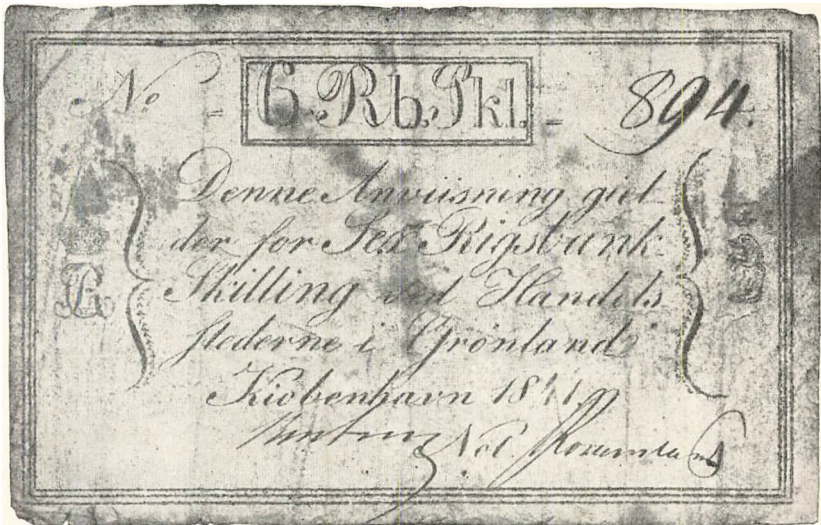 No 6 Rb.Skl. 894.
Denne Anviisning giel
der for Sex Rigsbank
Skilling ved Handels
stederne i Grönland
Kiöbenhavn 1841
Not